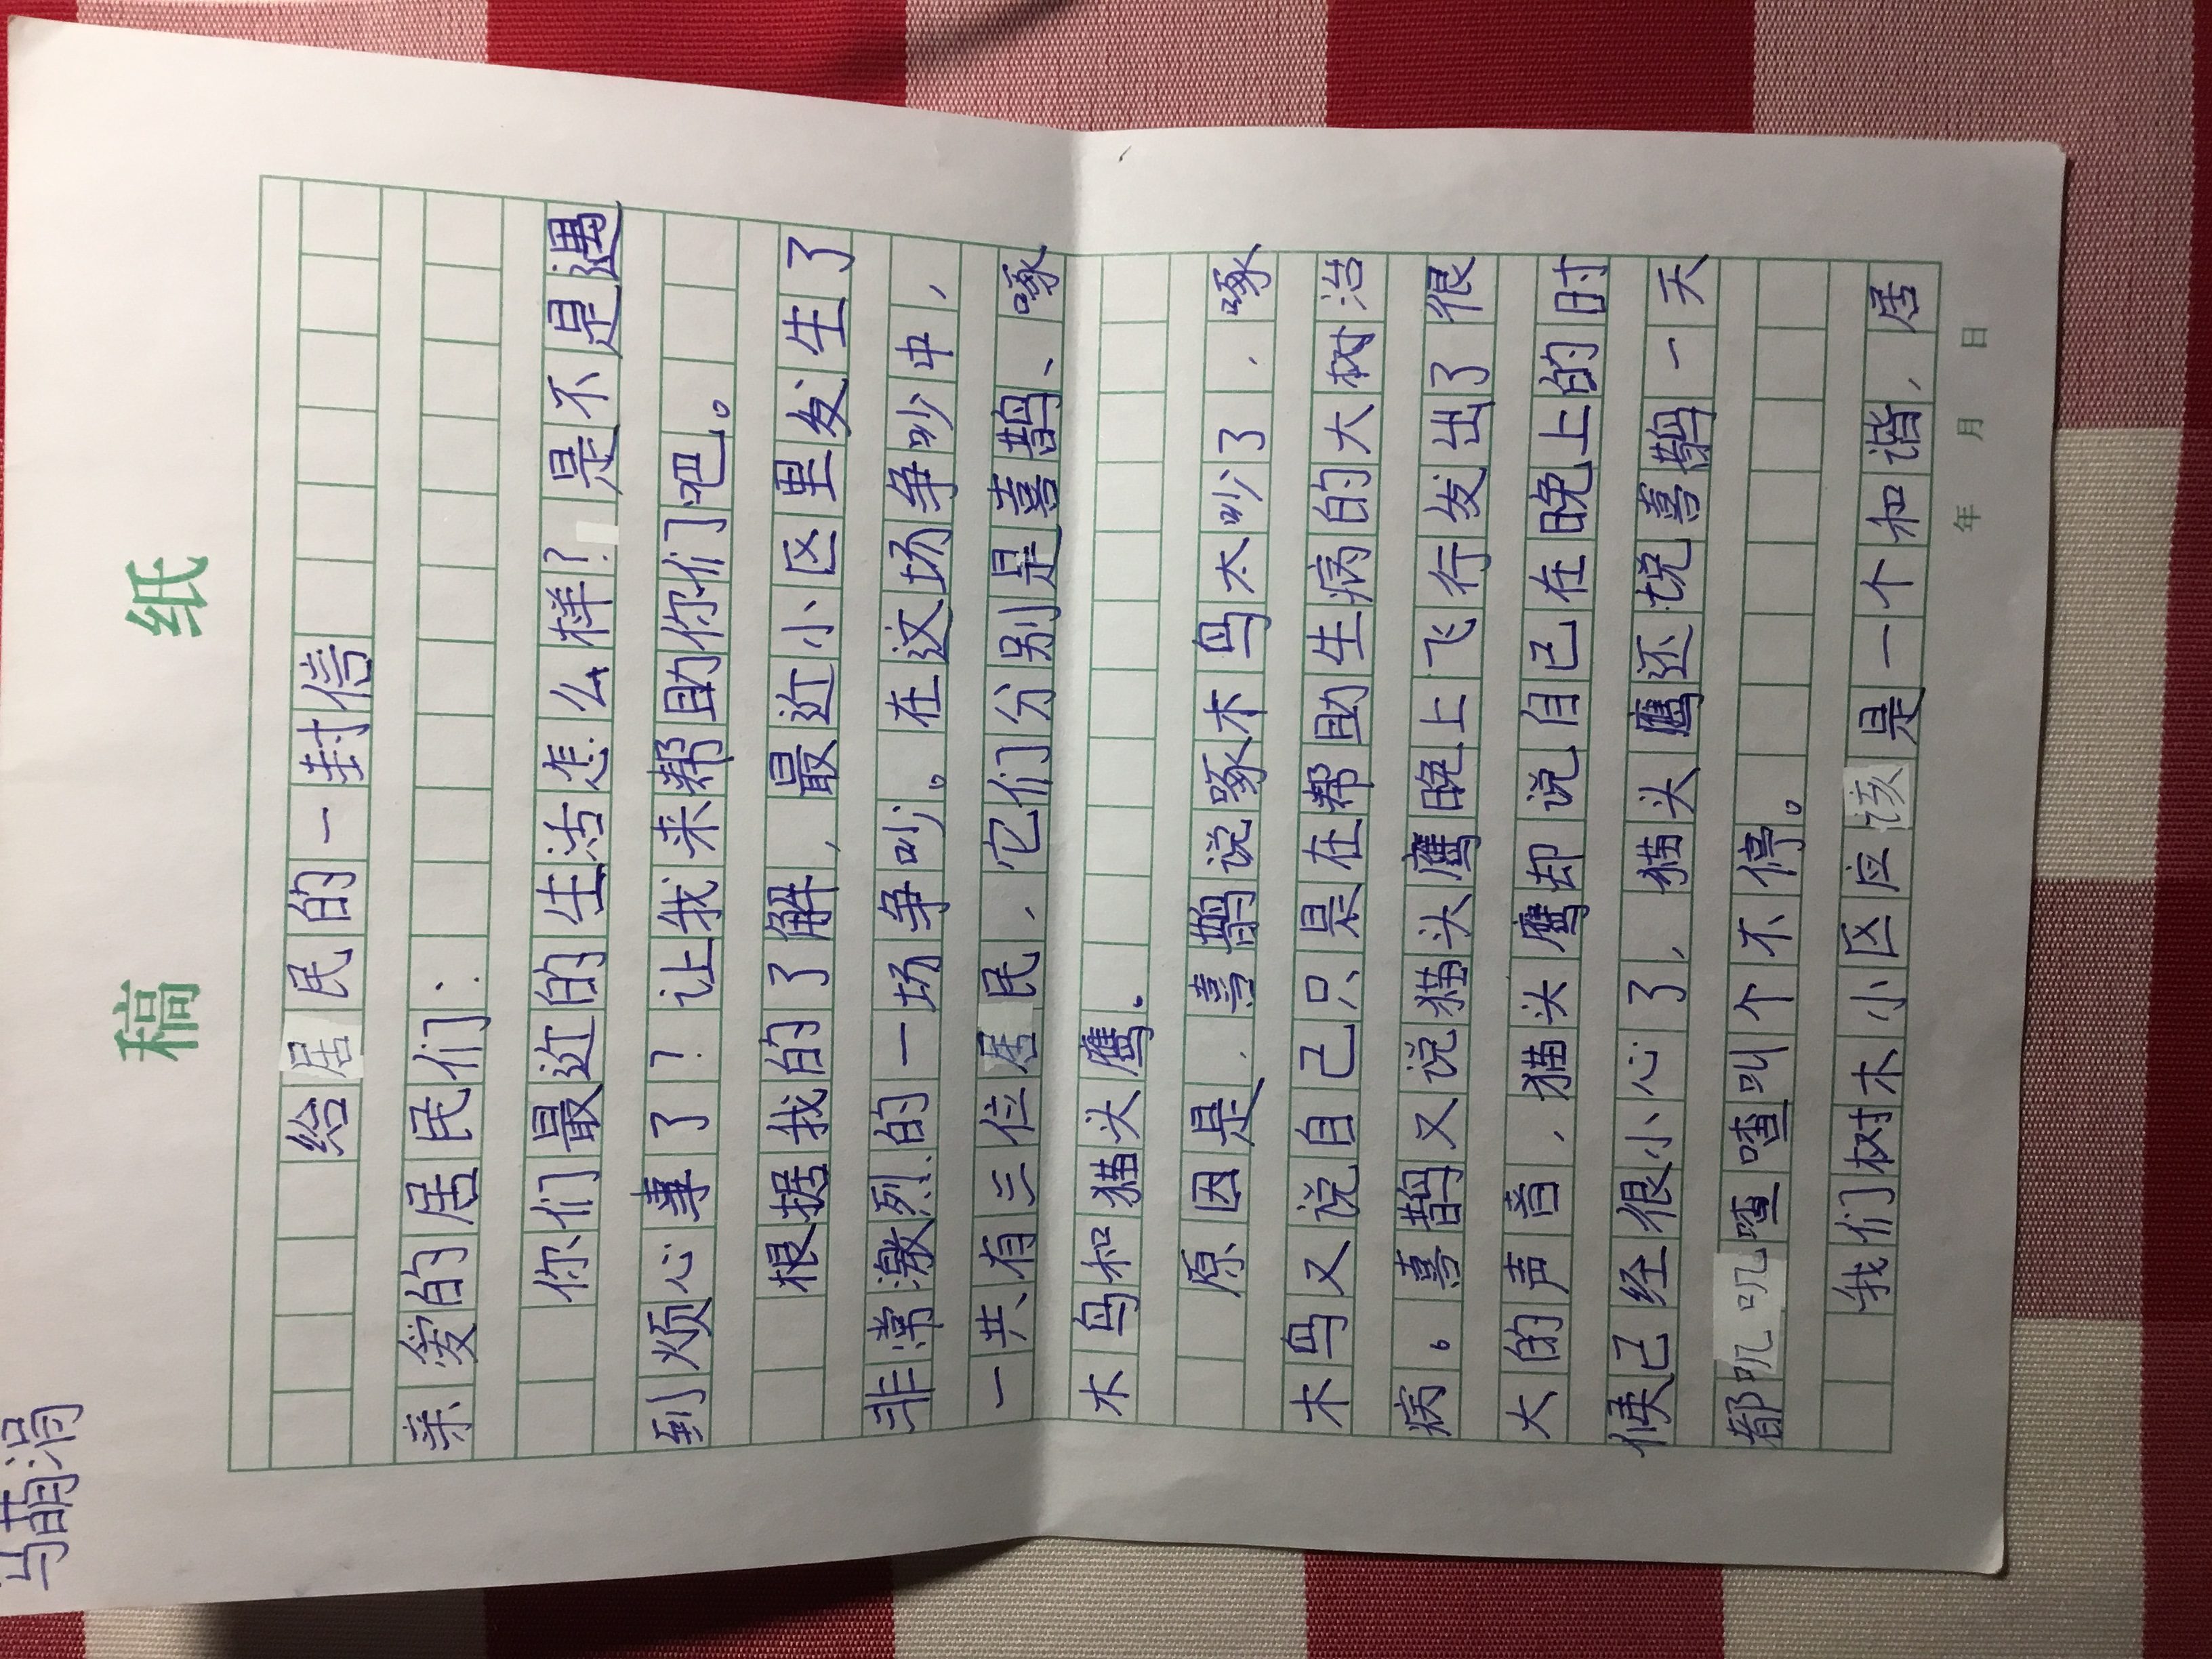 马萌涓
稿 纸
给居民的一封信
亲爱的居民们：
你们最近的生活怎么样？是不是遇
到烦心事了？让我来帮助你们吧。
根据我的了解，最近小区里发生了
非常激烈的一场争吵。在这场争吵中，
一共有三位居民，它们分别是喜鹊、啄
木鸟和猫头鹰。
原因是，喜鹊说啄木鸟太吵了，啄
木鸟又说自己只是在帮助生病的大树治
病。喜鹊又说猫头鹰晚上飞行发出了很
大的声音，猫头鹰却说自己在晚上的时
候已经很小心了，猫头鹰还说喜鹊一天
都叽叽喳喳叫个不停。
我们树木小区应该是一个和谐，居
年 月 日